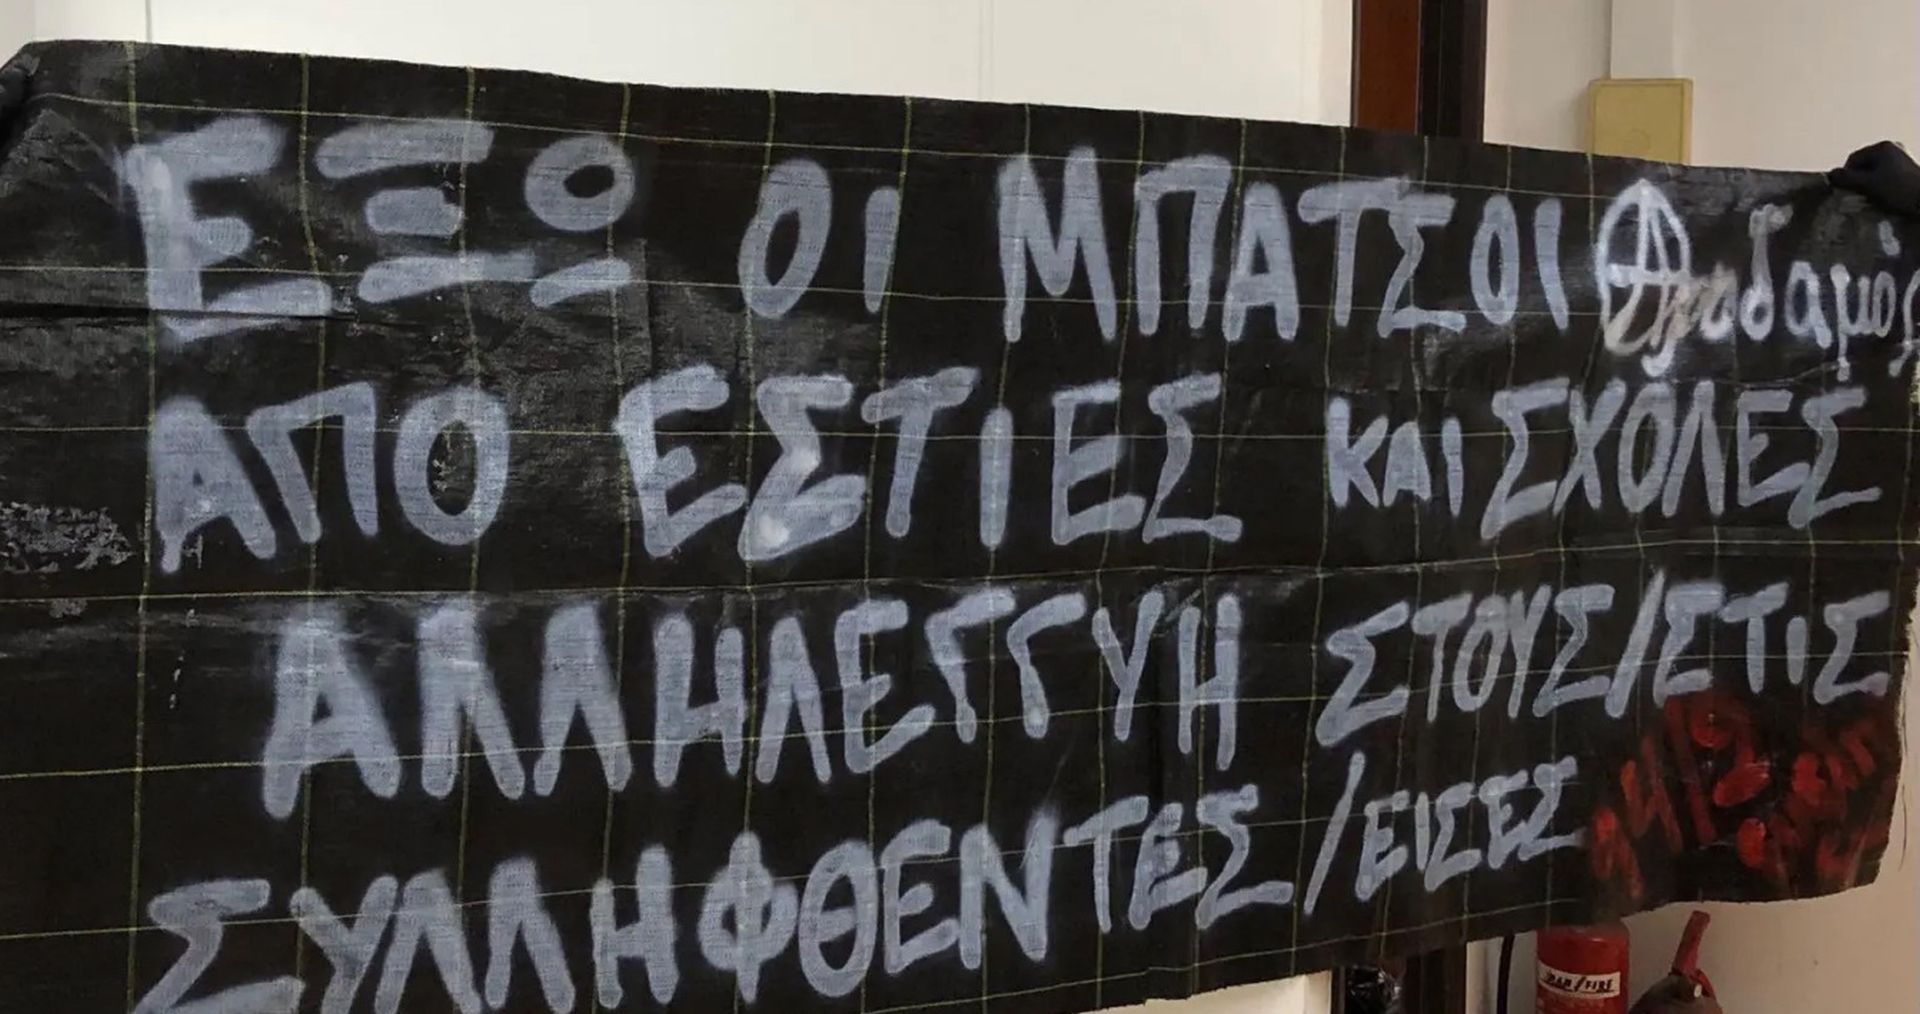 ΕΞΩ ΟΙ ΜΠΑΤΣΟΙ
ΑΠΟ ΕΣΤΙΕΣ ΚΑΙ ΣΧΟΛΕΣ
ΑΛΛΗΛΕΓΓΥΗ ΣΤΟΥΣ/ΣΤΙΣ
ΣΥΛΛΗΦΘΕΝΤΕΣ/ΕΙΣΕΣ
FIRE